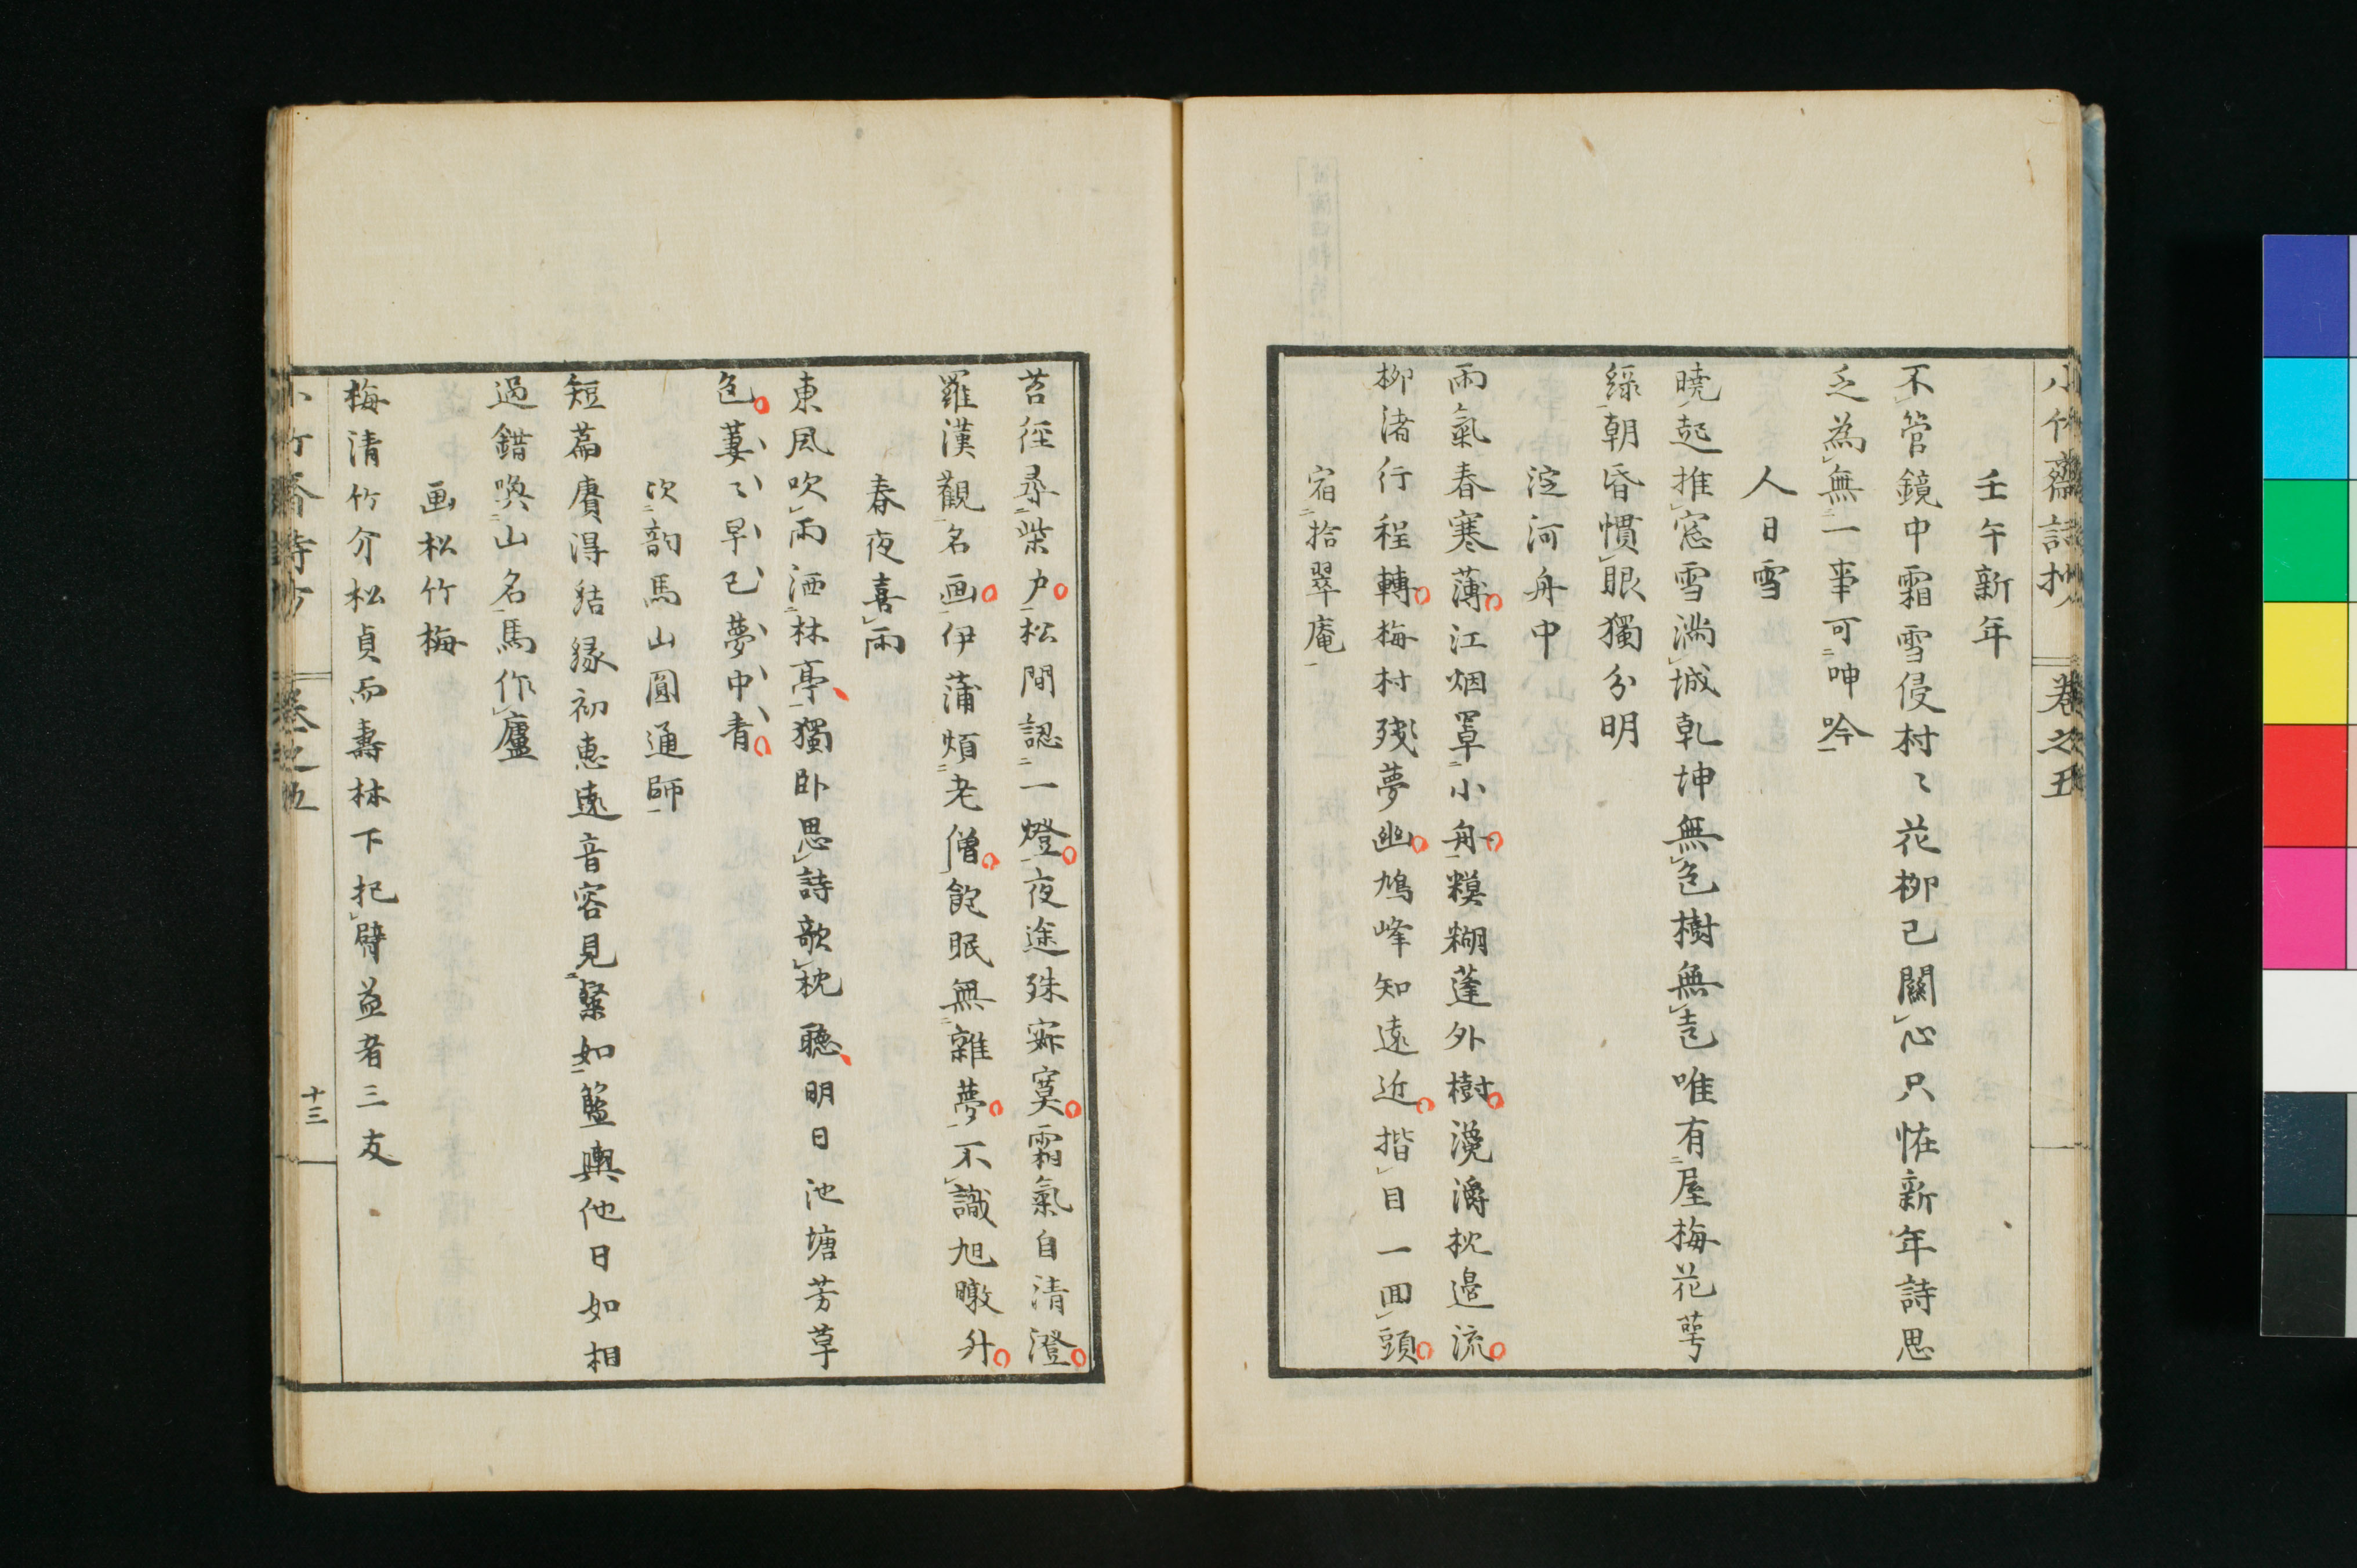 小竹齋詩抄 卷之五
壬午新年
不管鏡中霜雪侵村〻花柳已關心只恠新年詩思
乏為無一事可呻吟
人日雪
曉起推窓雪滿城乾坤無色樹無声唯有屋梅花萼
緑朝昏慣眼獨分明
淀河舟中
雨氣春寒薄江烟罩小舟糢糊蓬外樹潺湲枕邉流
柳渚行程轉梅村殘夢幽鳩峰知遠近揩目一囬頭
宿拾翠庵
苔徑尋柴戸松間認一燈夜途殊寂寞霜氣自清澄
羅漢觀名画伊蒲煩老僧飽眠無雜夢不識旭暾升
春夜喜雨
東風吹雨洒林亭獨卧思詩欹枕聽明日池塘芳草
色萋〻早已夢中青
次韵馬山圓通師
短篇賡得結縁初恵遠音容見槩如籃輿他日如相
過錯喚山名馬作廬
画松竹梅
梅清竹介松貞而壽林下把臂益者三友
小竹齋詩抄 卷之五 十三